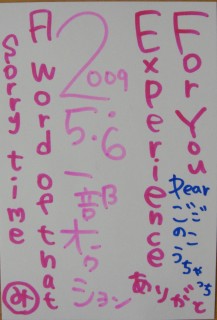 For You
Experience
2009
5.6
一部
ション
A word of that
Sorry time
Dear
ありがと